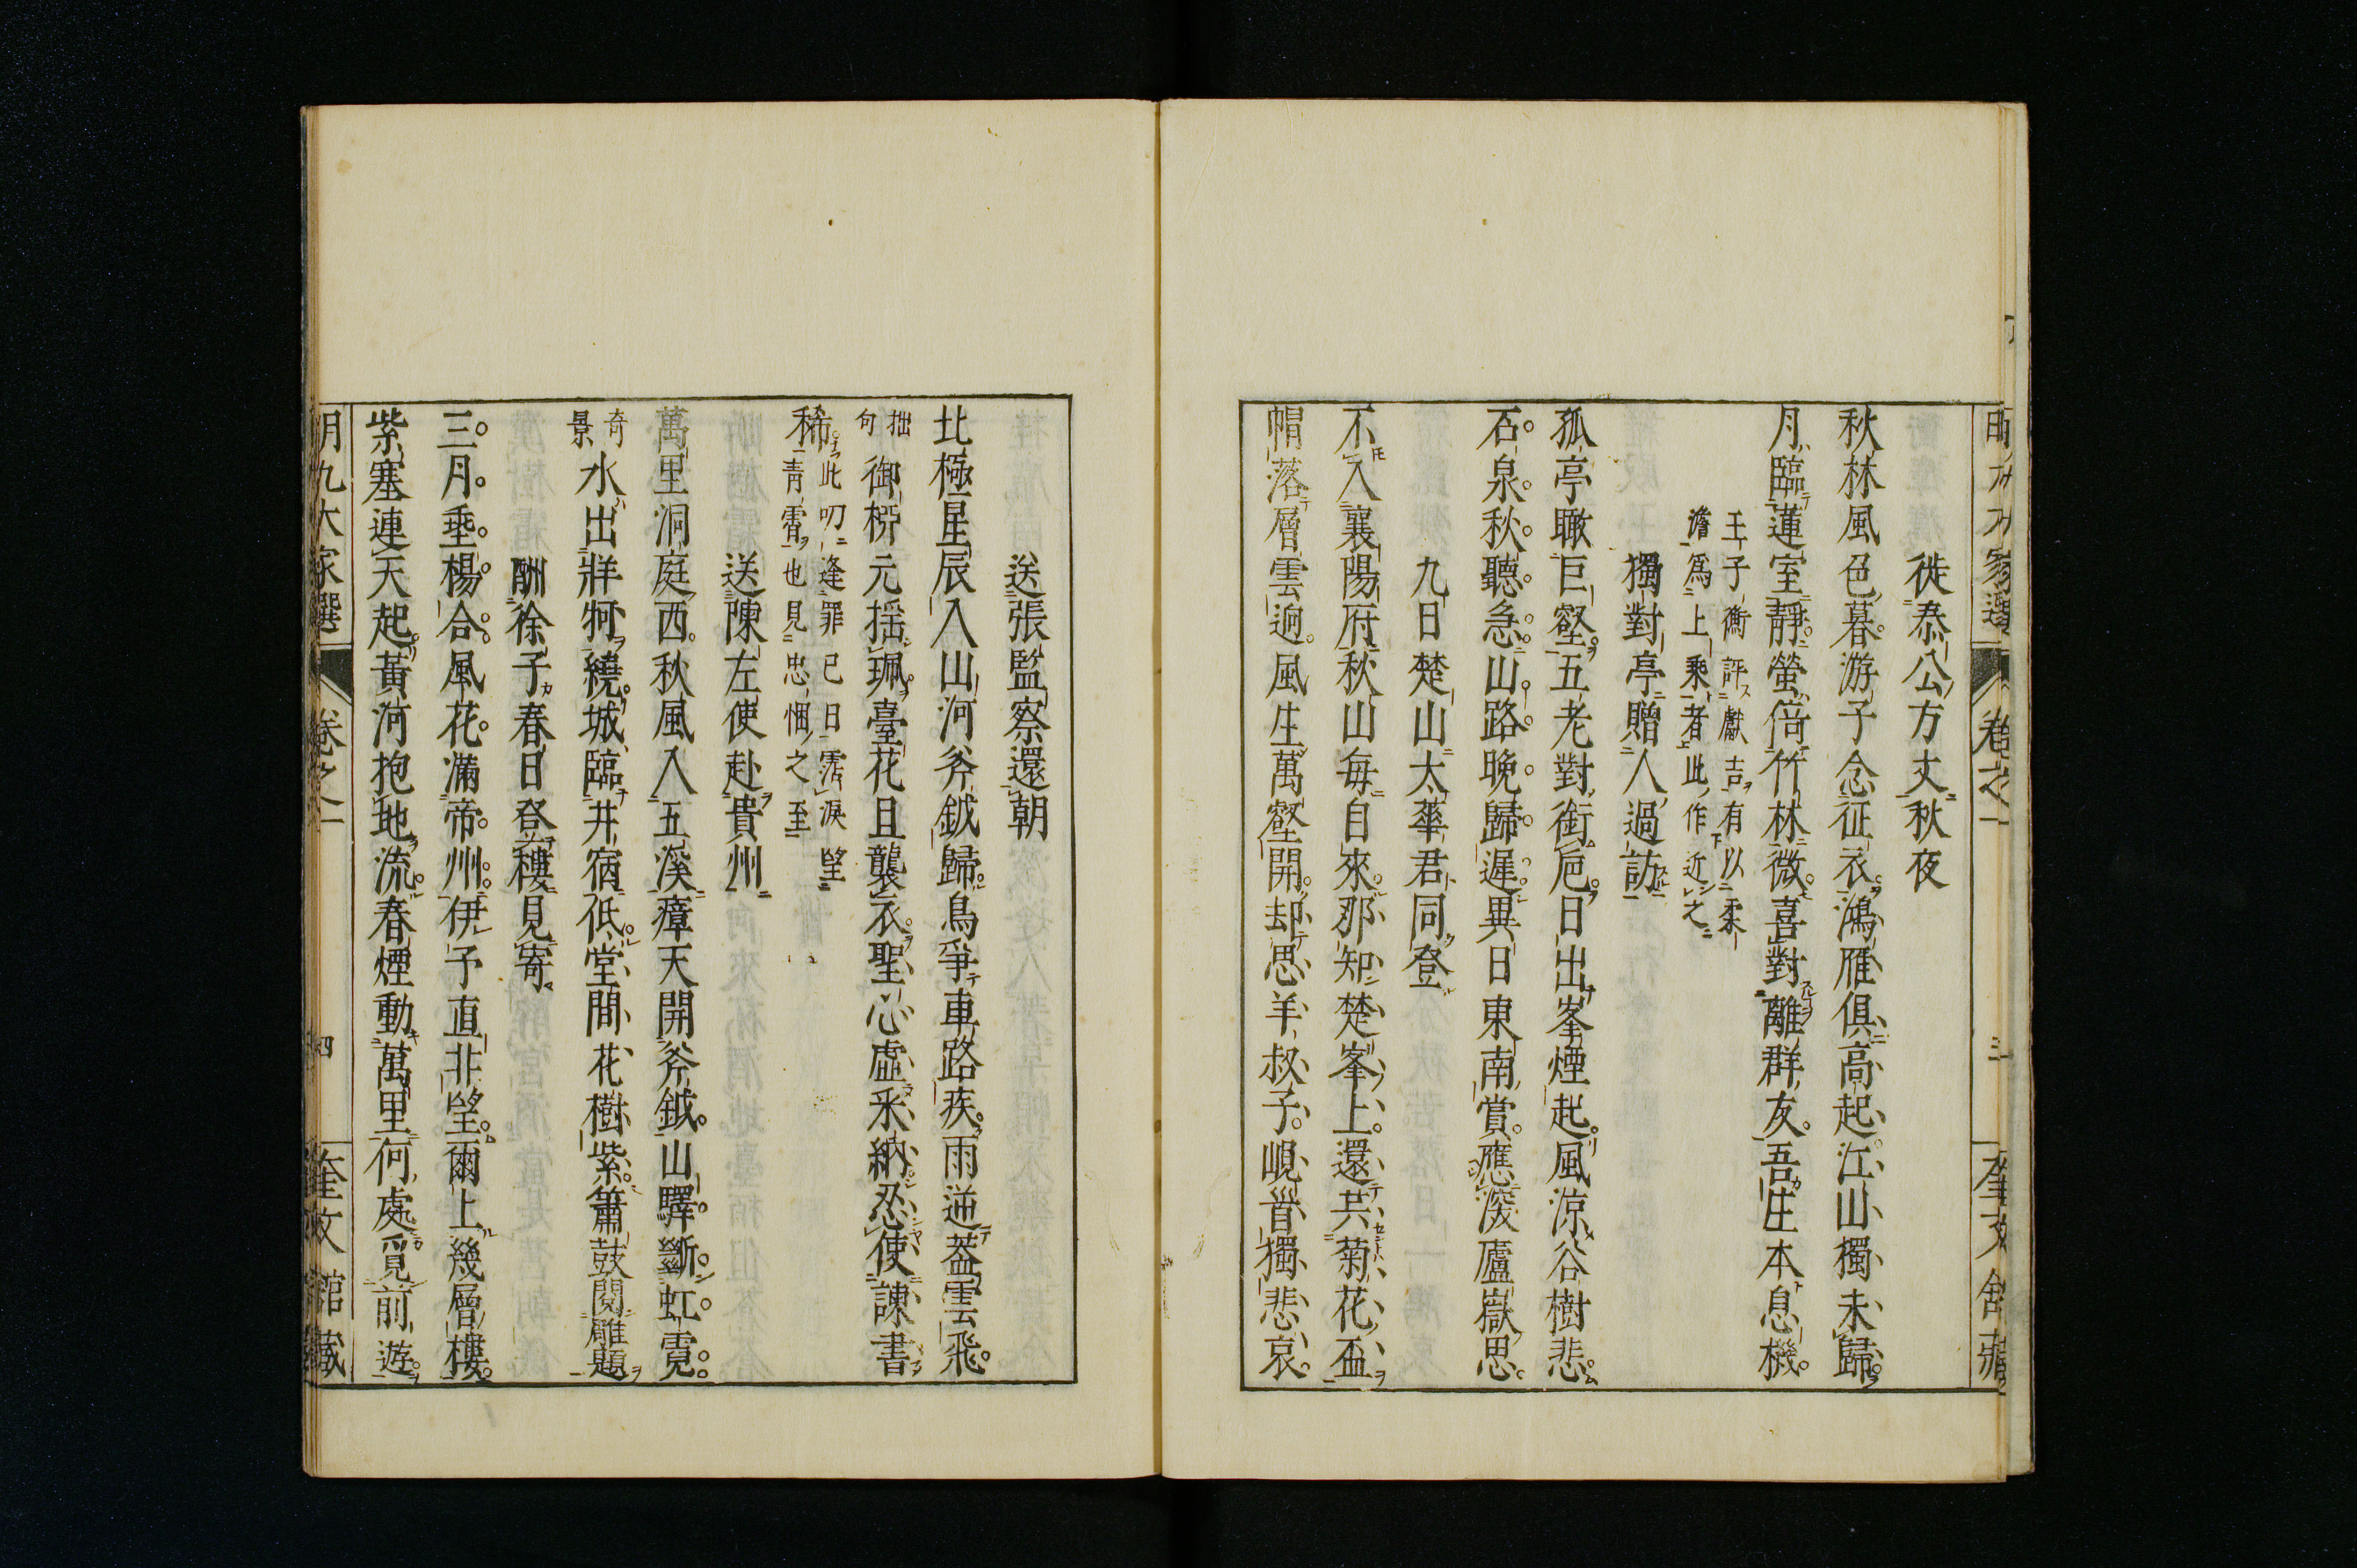 徙泰公方丈秋夜
秋林風色暮游子念征衣鴻雁俱高起江山獨未歸
月臨蓮室靜螢倍竹林微喜對離群友吾生本息機
王子衡評獻吉有以柔
澹爲上乘者此作近之
獨對亭贈人過訪
孤亭瞰巨壑五老對銜巵日出峯煙起風涼谷樹悲
石泉秋聽急山路晚歸遲異日東南賞應深廬嶽思
九日楚山太華君同登
不入襄陽府秋山每自來那知楚峯上還共菊花盃
帽落層雲迥風生萬壑開却思羊叔子峴首獨悲哀
送張監察還朝
北極星辰入山河斧鉞歸鳥爭車路疾雨逆蓋雲飛
拙句
御柳元搖珮臺花且襲衣聖心虛采納忍使諫書
稀
此叨逢罪已日霑淚望
青霄也見忠悃之至
送陳左使赴貴州
萬里洞庭西秋風入五溪瘴天開斧鉞山驛斷虹霓
奇景
水出牂牁繞城臨井宿低堂間花樹紫簫鼓閱雕題
酬徐子春日登樓見寄
三月垂楊合風花滿帝州伊予直非望爾上幾層樓
紫塞連天起黃河抱地流春煙動萬里何處覓前遊
明九大家選
卷之一
四
奎文館藏